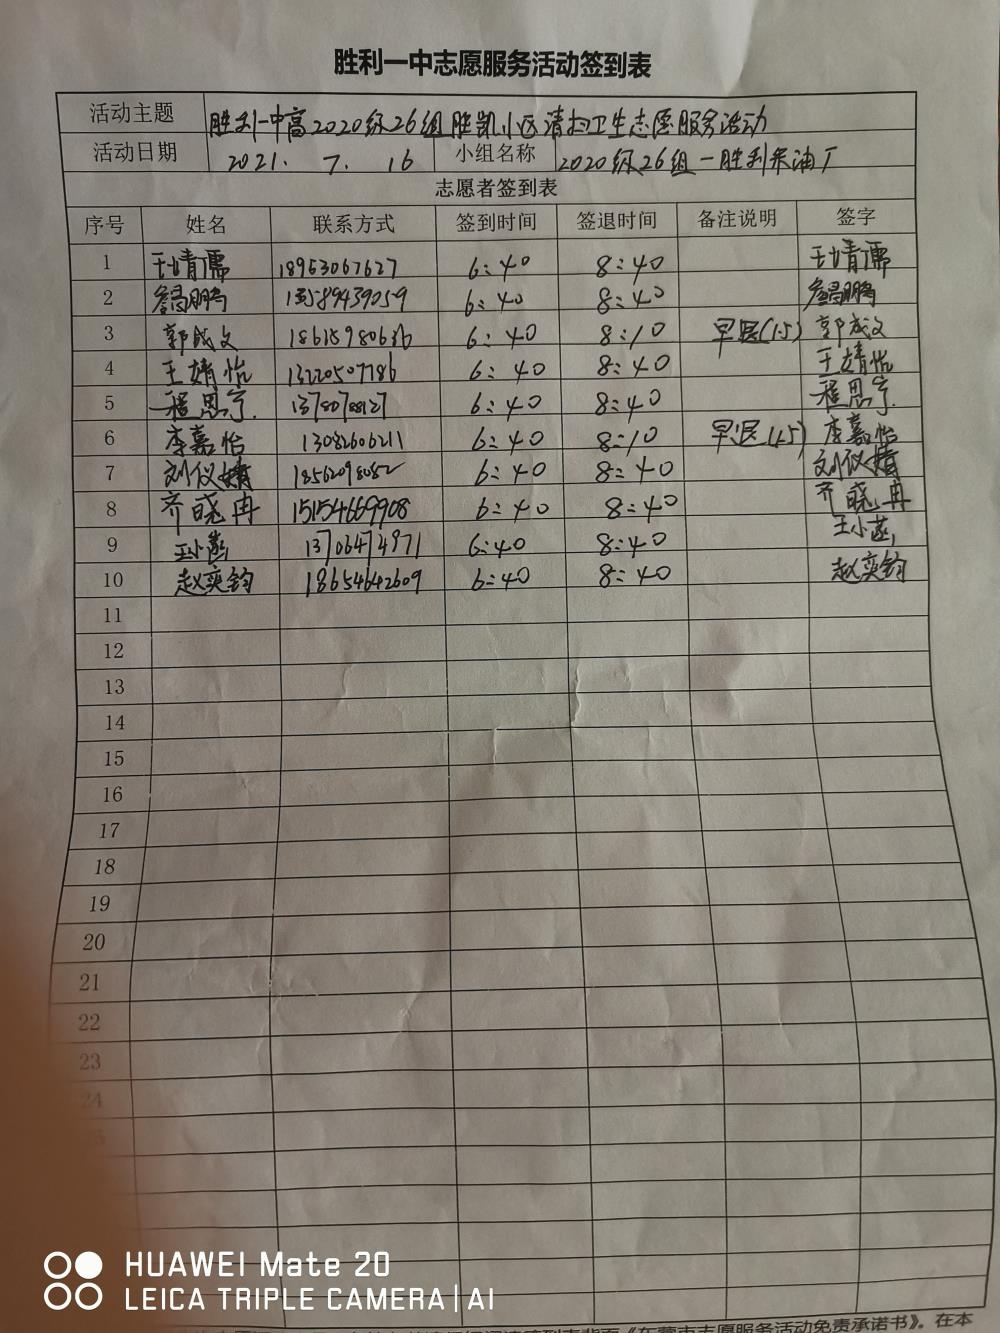 胜利一中志愿服务活动签到表
活动主题 胜利一中高2020级26组胜凯小区清扫卫生志愿服务活动
活动日期 2021. 7. 16 小组名称 2020级26组一胜利采油厂
志愿者签到表
序号 姓名 联系方式 签到时间 签退时间 备注说明 签字
1 王婧儒 18953067627 6:40 8:40 王婧儒
2 詹昌鹏 13589439059 6:40 8:40 詹昌鹏
3 郭成文 18615980636 6:40 8:10 早退(1.5) 郭成文
4 王婧怡 13220507786 6:40 8:40 王婧怡
5 程思宁 6:40 8:40 程思宁
6 李嘉怡 13082606211 6:40 8:10 早退(1.5) 李嘉怡
7 刘仪婧 18562098082 6:40 8:40 刘仪婧
8 齐晓冉 15154669908 6:40 8:40 齐晓冉
9 王小菡 13706474971 6:40 8:40 王小菡
10 赵奕钧 18654642609 6:40 8:40 赵奕钧
11
12
13
14
15
16
17
18
19
20
21
22
23
24
《东营市志愿服务活动免责承诺书》。在本
HUAWEI Mate 20
LEICA TRIPLE CAMERA | AI